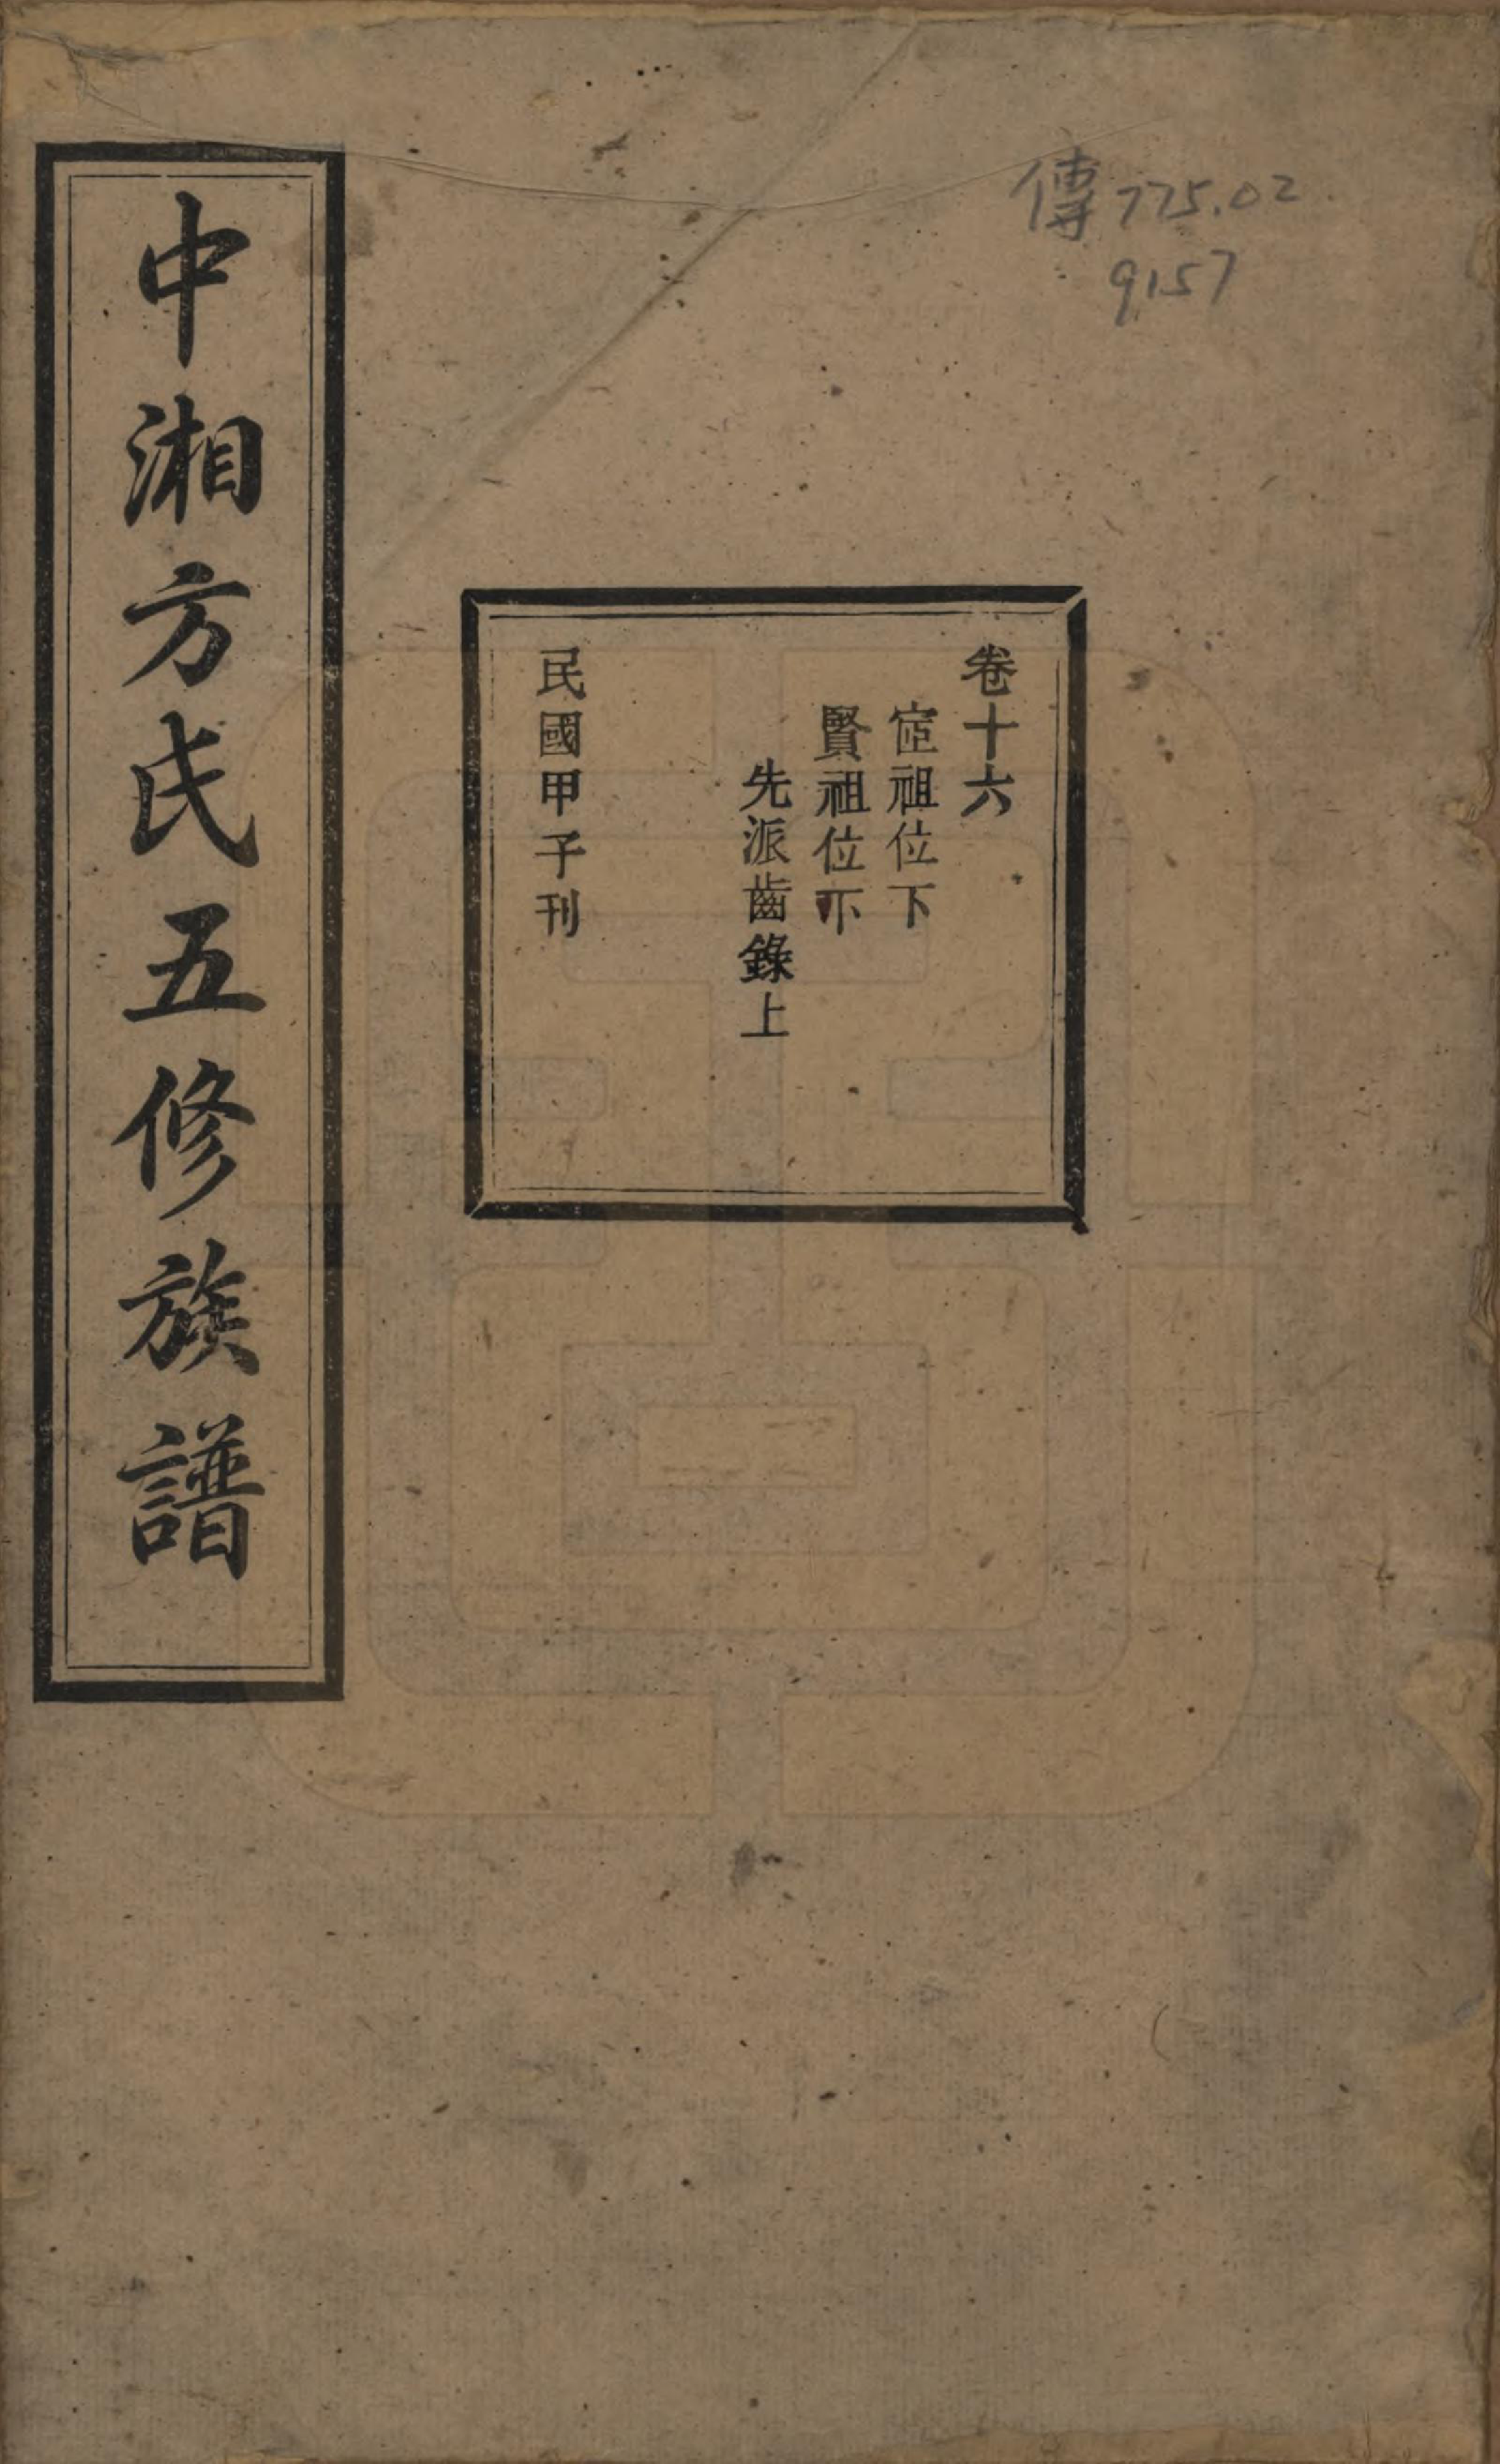 傳775.02
9157
卷十六
宧祖位下
賢祖位下
先派齒錄上
民國甲子刊
中湘方氏五修族譜